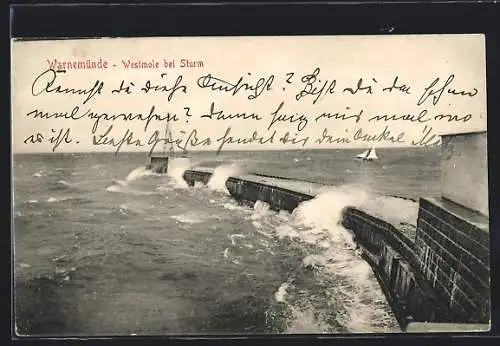 Warnemünde - Westmole bei Sturm
Kennst du diese Ansicht? Bist du da schon
mal gewesen? Dann sag' mir mal wo
es ist. Liebste Grüße sendet dir dein Onkel